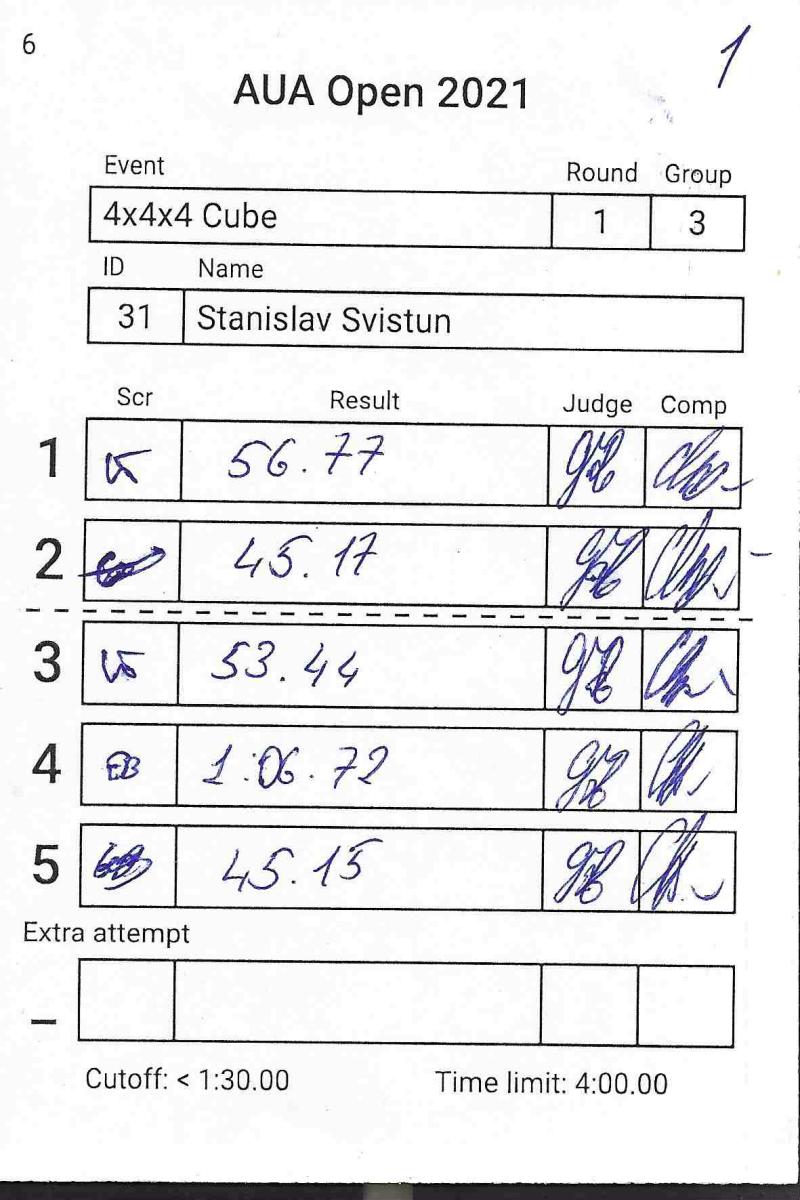 6
1
AUA Open 2021
Event Round Group
4x4x4 Cube 1 3
ID Name
31 Stanislav Svistun
Scr Result Judge Comp
1 56.77
2 45.17
3 53.44
4 1:06.72
5 45.15
Extra attempt
_
Cutoff: < 1:30.00 Time limit: 4:00.00